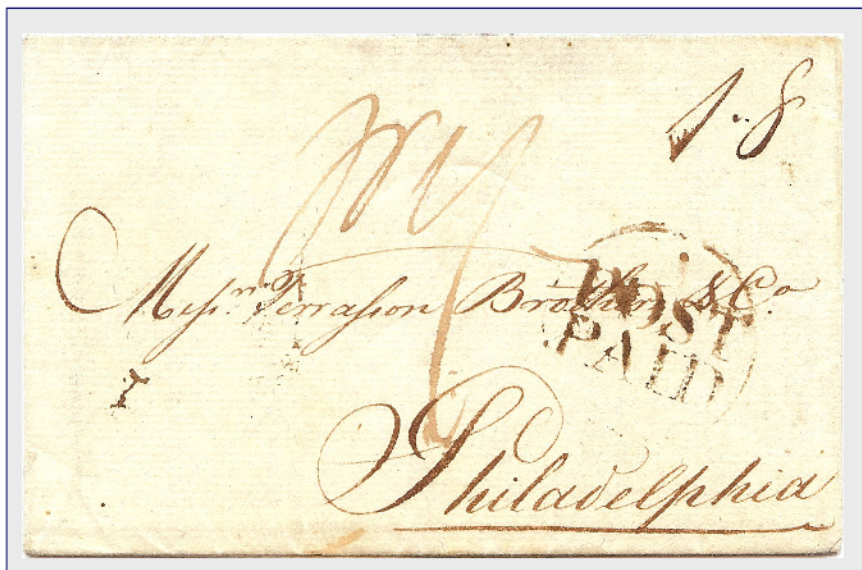 1..8
Messrs. Terrasson Brothers & Co.
POST
PAID
Philadelphia